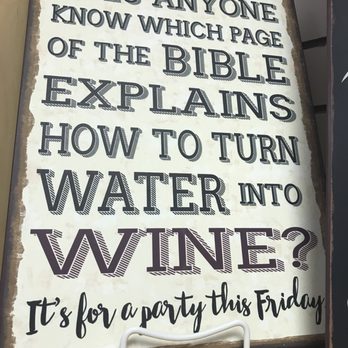 ANYONE
KNOW WHICH PAGE
OF THE BIBLE
EXPLAINS
HOW TO TURN
WATER INTO
WINE?
It's for a party this Friday